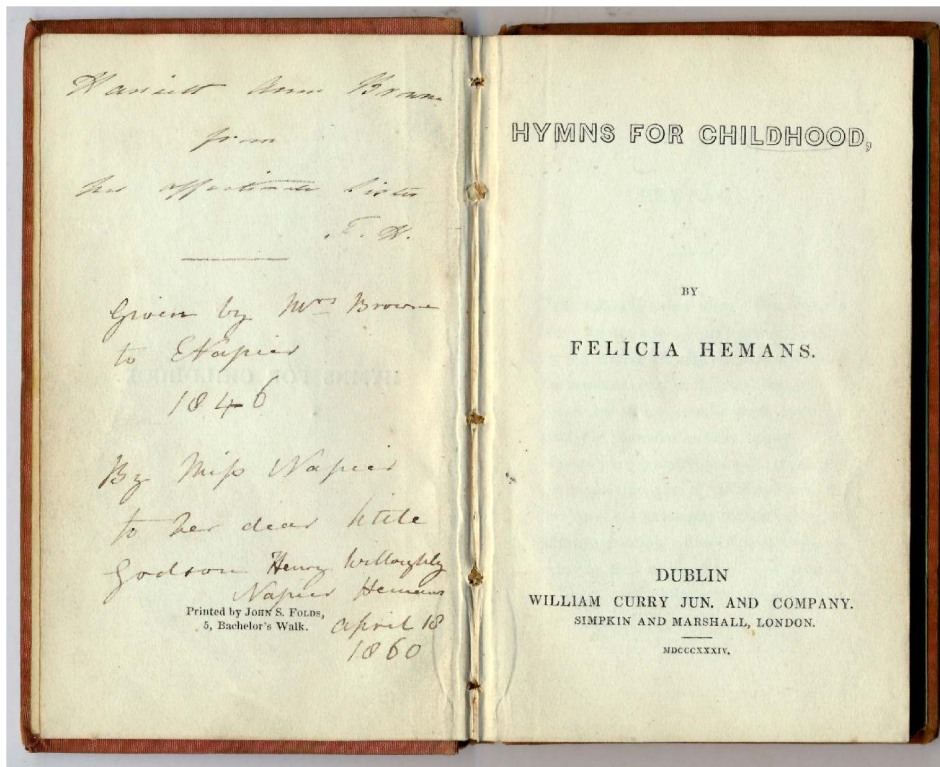 Harriett Anne Browne
from
her affectionate Sister
F. H.
Given by Mrs Browne
to ENapier
1846
By Miss Napier
to her dear little
Godson Henry Willoughby
Napier Hemans
April 18
1860
Printed by JOHN S. FOLDS,
5, Bachelor's Walk.
HYMNS FOR CHILDHOOD,
BY
FELICIA HEMANS.
DUBLIN
WILLIAM CURRY JUN. AND COMPANY.
SIMPKIN AND MARSHALL, LONDON.
MDCCCXXXIV.